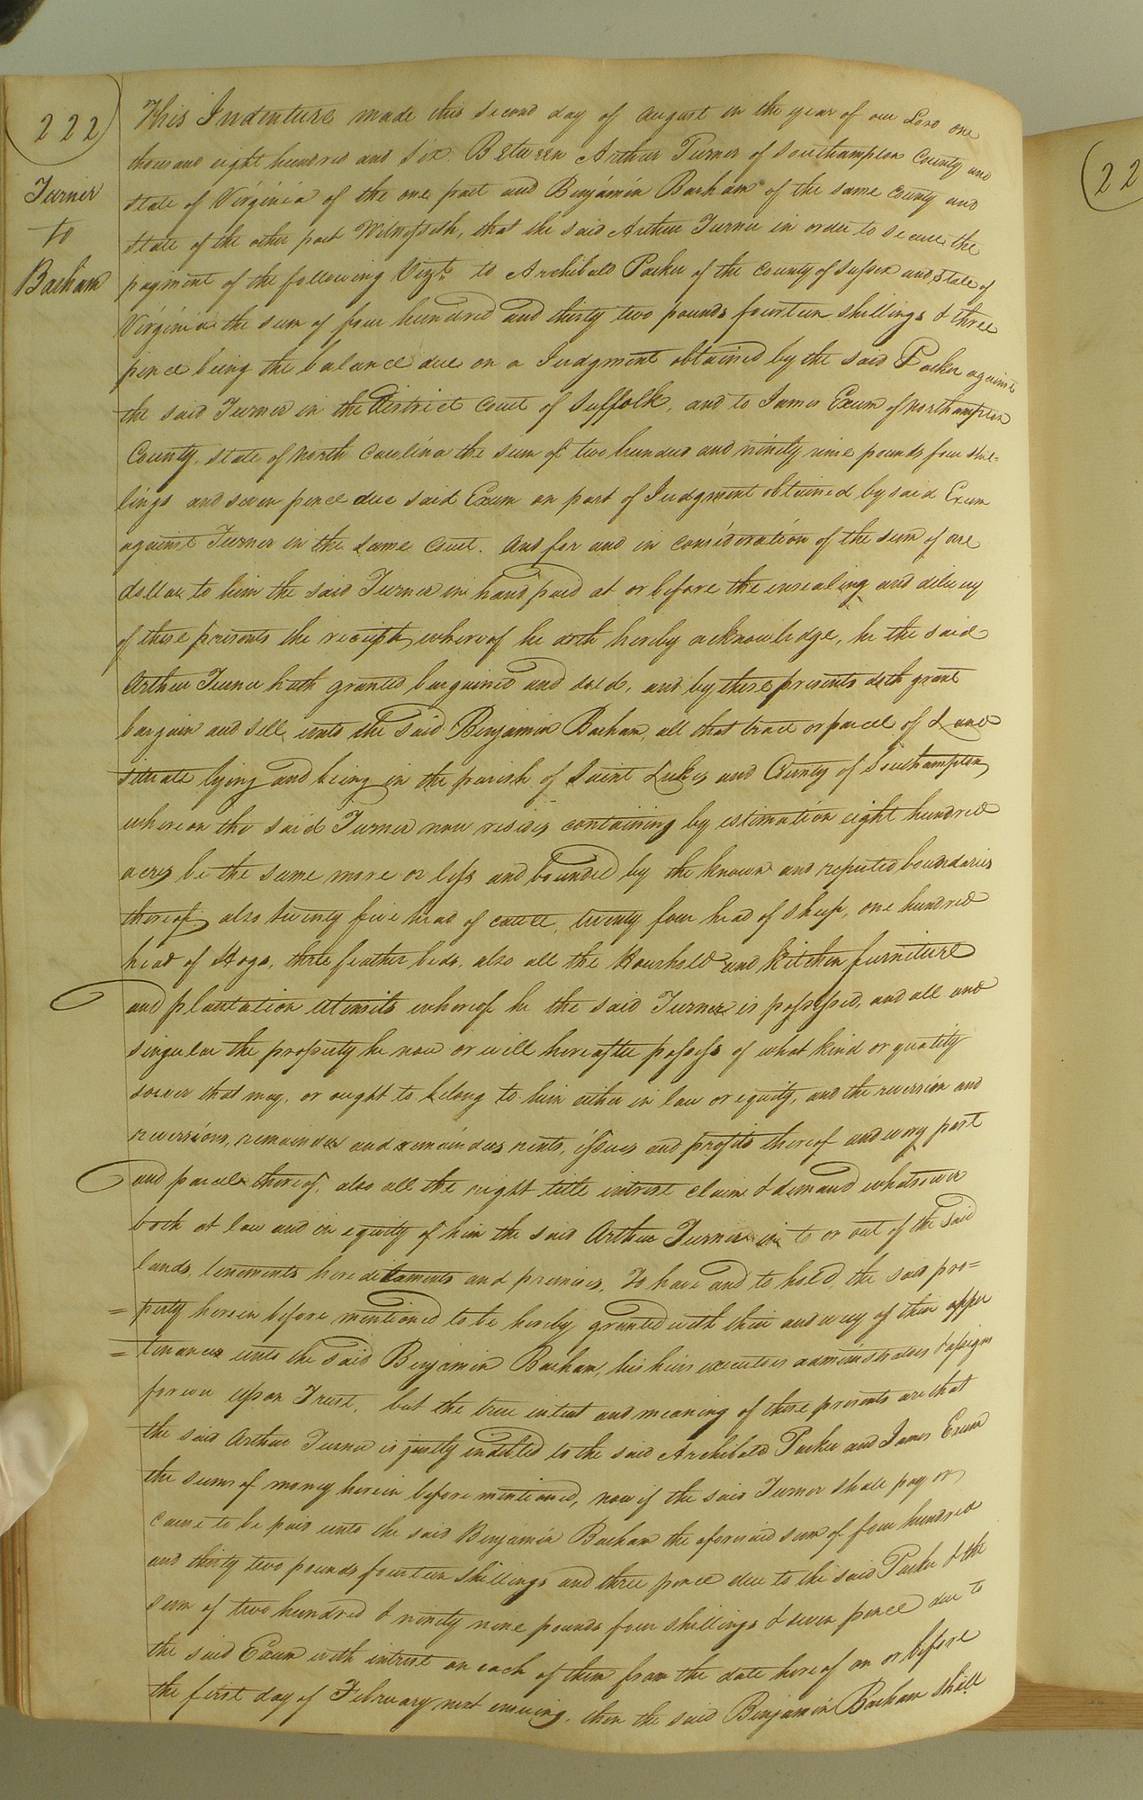 222
Turner
to
Barham
This Indenture made this second day of August in the year of our Lord one
thousand eight hundred and six. Between Arthur Turner of Southampton County and
state of Virginia of the one part and Benjamin Barham of the same county and
state of the other part Witnesseth, that the said Arthur Turner in order to secure the
payment of the following Vizt. to Archibald Parker of the County of Sussex and State of
Virginia the sum of four hundred and thirty two pounds fourteen shillings & three
pence being the balance due on a Judgment obtained by the said Parker against
the said Turner in the District Court of Suffolk, and to James Exum of Northampton
County, state of North Carolina the sum of two hundred and ninety nine pounds four shil=
lings and seven pence due said Exum on part of Judgment obtained by said Exum
against Turner in the same Court. And for and in consideration of the sum of one
dollar to him the said Turner in hand paid at or before the ensealing and delivery
of these presents the receipt whereof he doth hereby acknowledge, he the said
Arthur Turner hath granted bargained and sold, and by these presents doth grant
bargain and sell unto the said Benjamin Barham, all that tract or parcel of Land
situate lying and being in the parish of Saint Lukes and County of Southampton,
whereon the said Turner now resides containing by estimation eight hundred
acres be the same more or less and bounded by the known and reputed boundaries
thereof, also twenty five head of cattle, twenty four head of sheep, one hundred
head of Hogs, three feather beds, also all the Houshold and kitchen furniture
and plantation utensils whereof he the said Turner is possessed, and all and
singular the property he now or will hereafter possess of what kind or quality
soever that may, or ought to belong to him either in law or equity, and the reversion and
reversions, remainder and remainders rents, issues and profits thereof and every part
and parcel thereof, also all the right title intrest claim & demand whatsoever
both at law and in equity of him the said Arthur Turner in to or out of the said
lands, tenements heredetaments and premises, To have and to hold the said pro=
=perty herein before mentioned to be hereby granted with their and every of their appur
=tenances unto the said Benjamin Barham, his heirs executors administrators & assigns
forever upon Trust, but the true intent and meaning of these presents are that
the said Arthur Turner is justly indebted to the said Archibald Parker and James Exum
the sums of money herein before mentioned, now if the said Turner shall pay or
cause to be paid unto the said Benjamin Barham the aforesaid sum of four hundred
and thirty two pounds fourteen shillings and three pence due to the said Parker & the
sum of two hundred & ninety nine pounds four shillings & seven pence due to
the said Exum with intrest on each of them from the date hereof on or before
the first day of February next ensuing, then the said Benjamin Barham shall
22